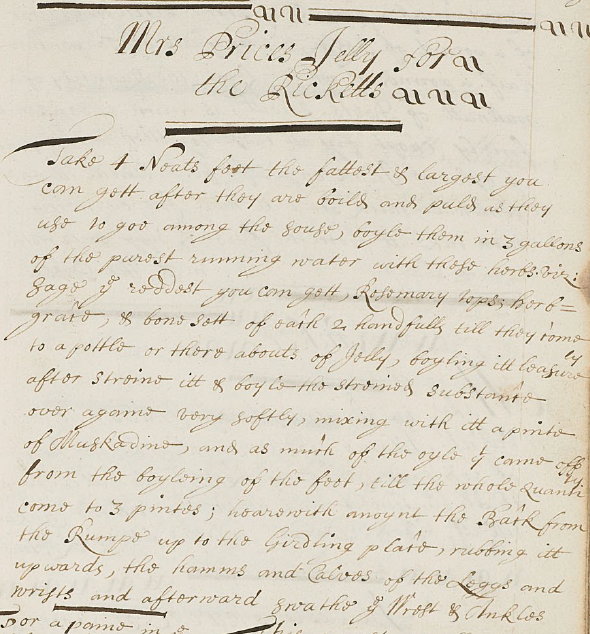 Mrs Prices Jelly for
the Ricketts
Take 4 Neats feet the fattest & largest you
can gett after they are boild and puld as they
use to goe among the souse, boyle them in 3 gallons
of the purest running water with these herbs viz:
Sage ye reddest you can gett, Rosemary tops, herb=
grace, & bone sett of each 2 handfulls till they come
to a pottle or there abouts of Jelly, boyling itt leasurely
after streine itt & boyle the streined substance
over againe very softly, mixing with itt a pinte
of Muskadine, and as much of the oyle yt came off
from the boyleing of the feet, till the whole quantity
come to 3 pintes; hearewith anoynt the Back from
the Rumpe up to the Girdling place, rubbing itt
upwards, the hamms and Calves of the Leggs and
wrists and afterward swathe ye Wrest & Ankles
For a paine in